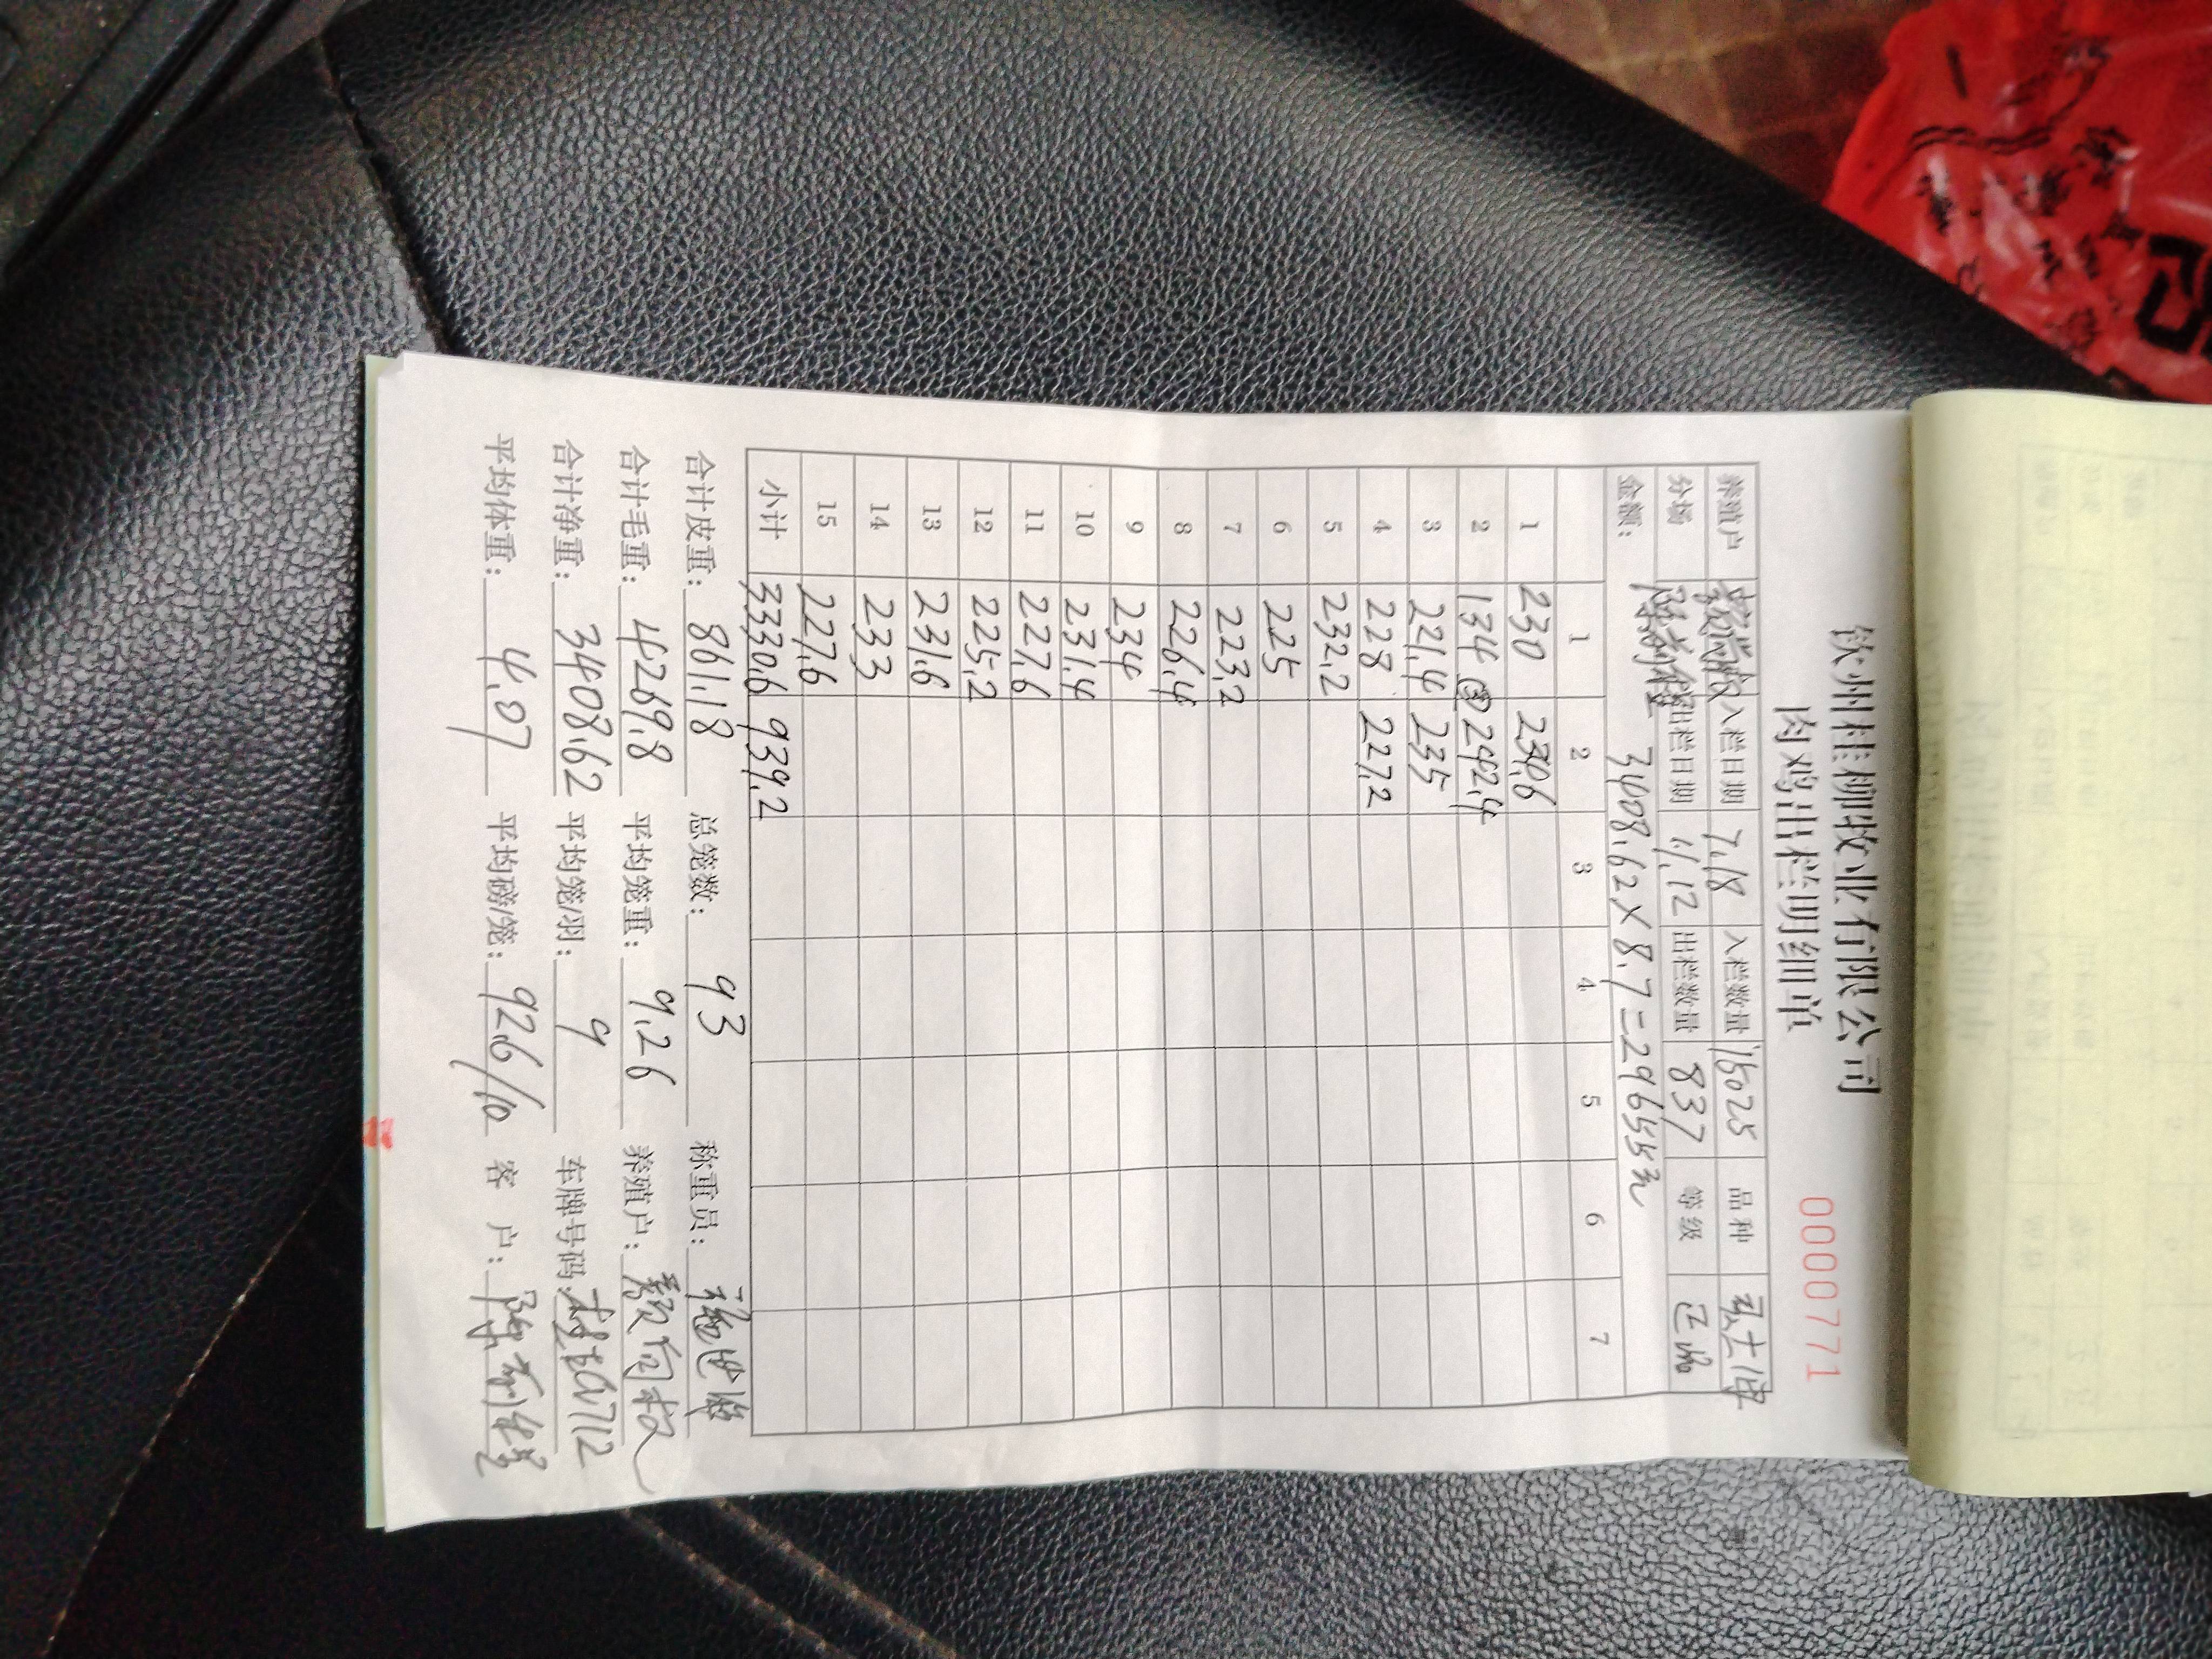 钦州桂柳牧业有限公司
肉鸡出栏明细单
00000771
养殖户 入栏日期 7.18 入栏数量 15025 品种
分场 出栏日期 11.12 出栏数量 837 等级 正品
金额: 3408.62×8.7=29655元
1 2 3 4 5 6 7
1 230 230.6
2 134 242.4
3 221.4 235
4 228 227.2
5 232.2
6 225
7 223.2
8 226.4
9 234
10 231.4
11 227.6
12 225.2
13 231.6
14 233
15 227.6
小计 3330.6 939.2
合计皮重: 861.18 总笼数: 93 称重员:
合计毛重: 4269.8 平均笼重: 9.26 养殖户:
合计净重: 3408.62 平均笼/羽: 9 车牌号码:
平均体重: 4.07 平均磅/笼: 92.6/10 客户: